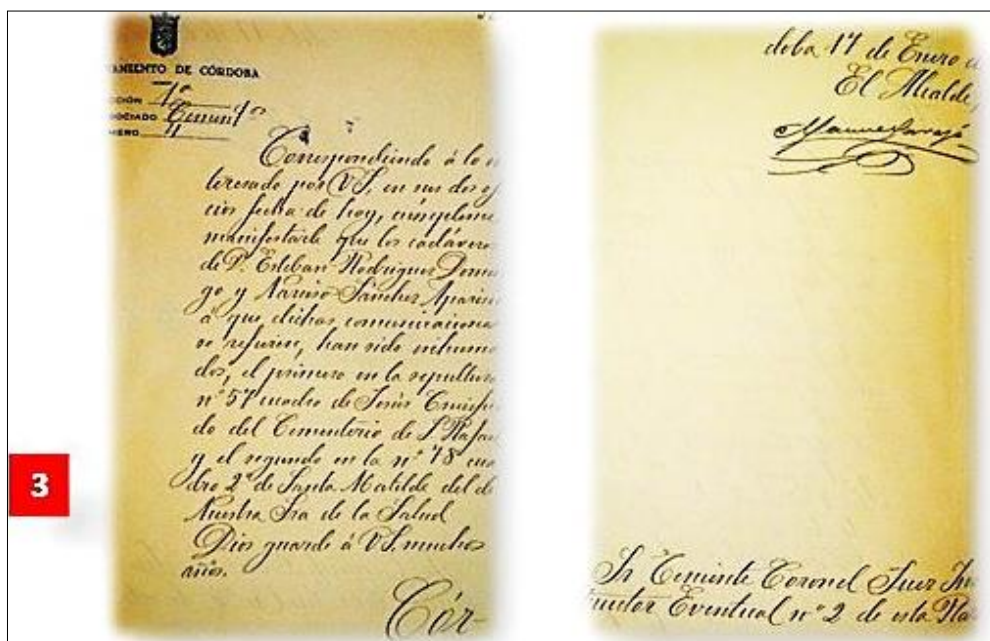 AMIENTO DE CÓRDOBA
CIÓN 1º
OCIADO Cement.ios
MERO
Correspondiendo á lo in
teresado por V.S. en sus dos ofi
cios fecha de hoy, cúmpleme
manifestarle que los cadávere
de D. Esteban Rodriguez Domin
go y Narciso Sánchez Aparici
á que dichas comunicacione
se refieren, han sido inhuma
dos, el primero en la sepultura
nº 57 cuadro de Jesús Crucifica
do del Cementerio de S. Rafae
y el segundo en la nº 78 cua
dro 2º de Santa Matilde del de
Nuestra Sra de la Salud
Dios guarde á V.S. muchos
años.
Cór-
doba 17 de Enero d
El Alcalde
Sr Teniente Coronel Juez Ins
tructor Eventual nº 2 de esta Pla
3